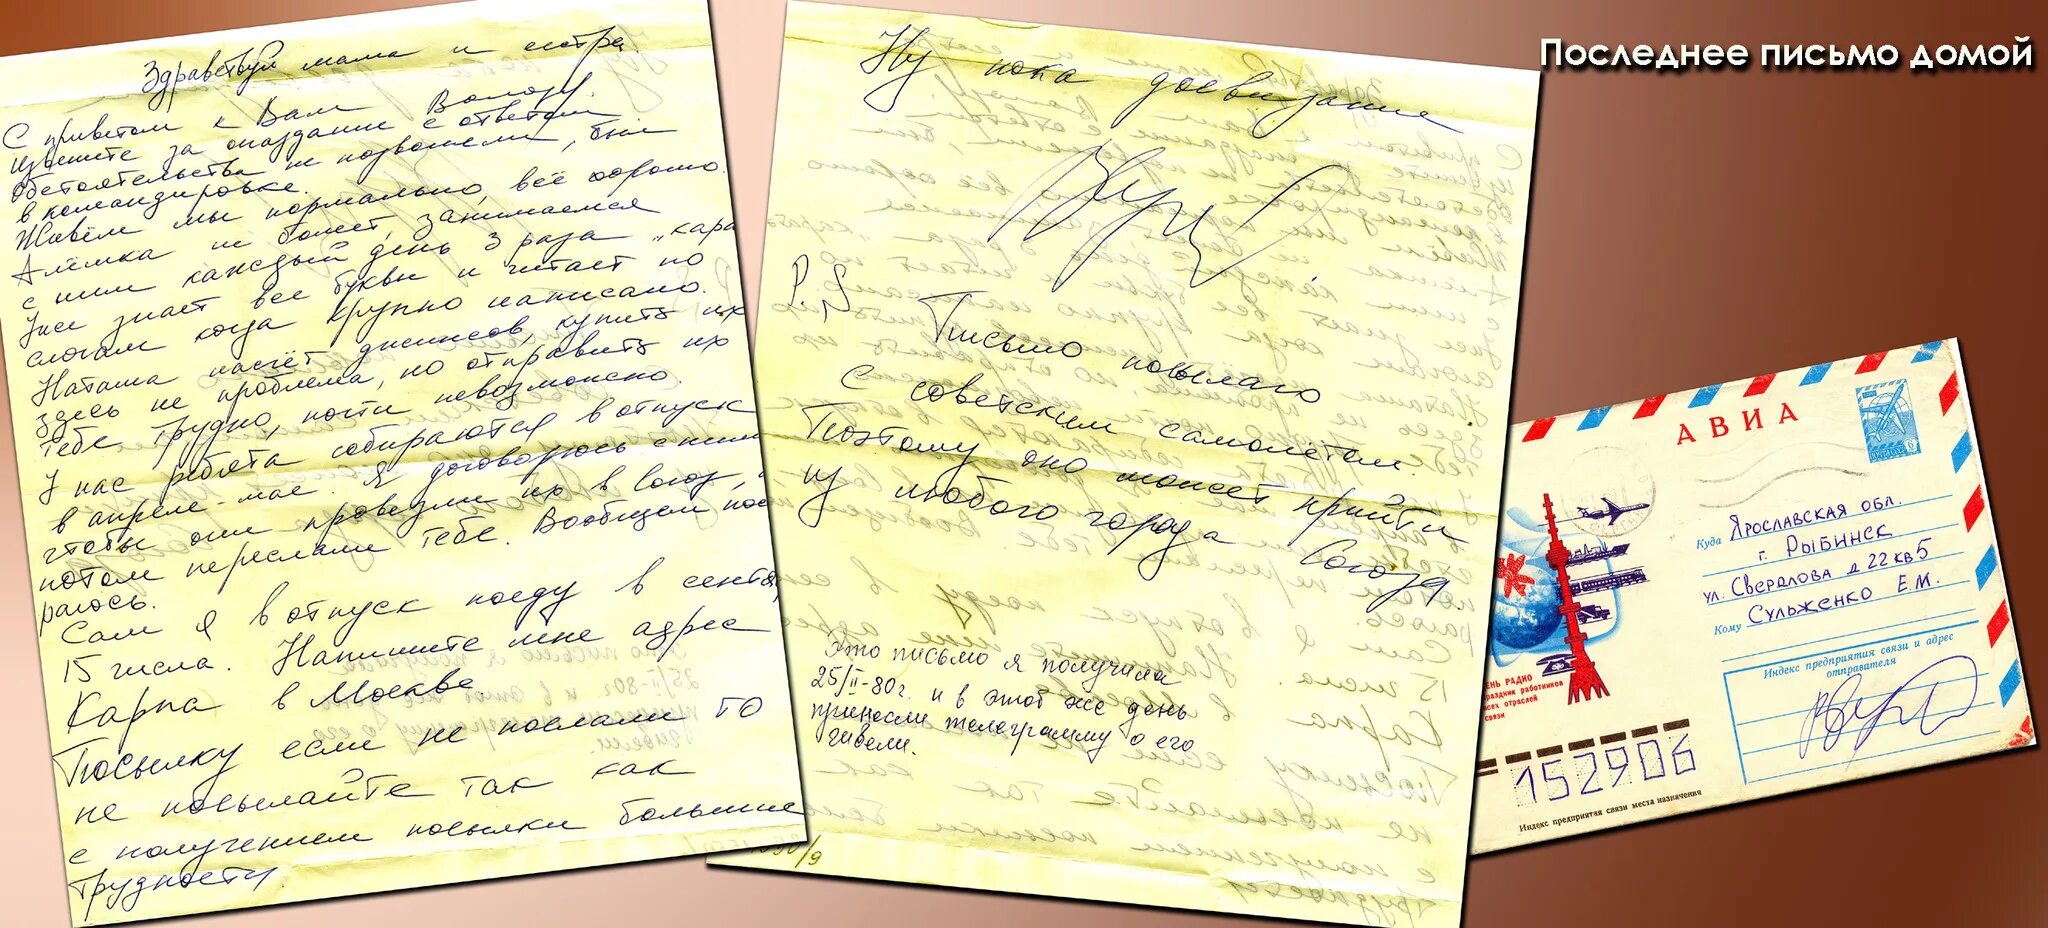 Последнее письмо домой
Здравствуй мама и сестра.
С приветом к Вам Володя.
извените за опаздание с ответом
обстоятельства не позволяли, был
в командировке.
Живём мы нормально, всё хорошо.
Алёшка не болеет, занимаемся
с ним каждый день 3 раза
Уже знает все буквы и читает по
слогам когда крупно написано.
Наташа насчёт джинсов, купить их
здесь не проблема, но отправить их
тебе трудно, почти невозможно.
У нас ребята собираются в отпуск
в апреле-мае. Я договорюсь с ними
чтобы они провезли их в Союз, а
потом переслали тебе. Вообщем пос
раюсь.
Сам я в отпуск поеду в сентя
15 числа. Напишите мне адрес
Карпа в Москве.
Посылку если не послали то
не посылайте так как
с получением посылки большие
трудности
Ну пока досвидание
P.S
Письмо посылаю
с советским самолётом.
Поэтому оно может прийти
из любого города Союза
Это письмо я получила
25/II-80г. и в этот же день
принесли телеграмму о его
гибели.
АВИА
Куда Ярославская обл.
г. Рыбинск
ул. Свердлова д 22 кв 5
Кому Сульженко Е.М.
Индекс предприятия связи и адрес
отправителя
ЕНЬ РАДИО
раздник работников
сех отраслей
связи
152906
Индекс предприятия связи места назначения